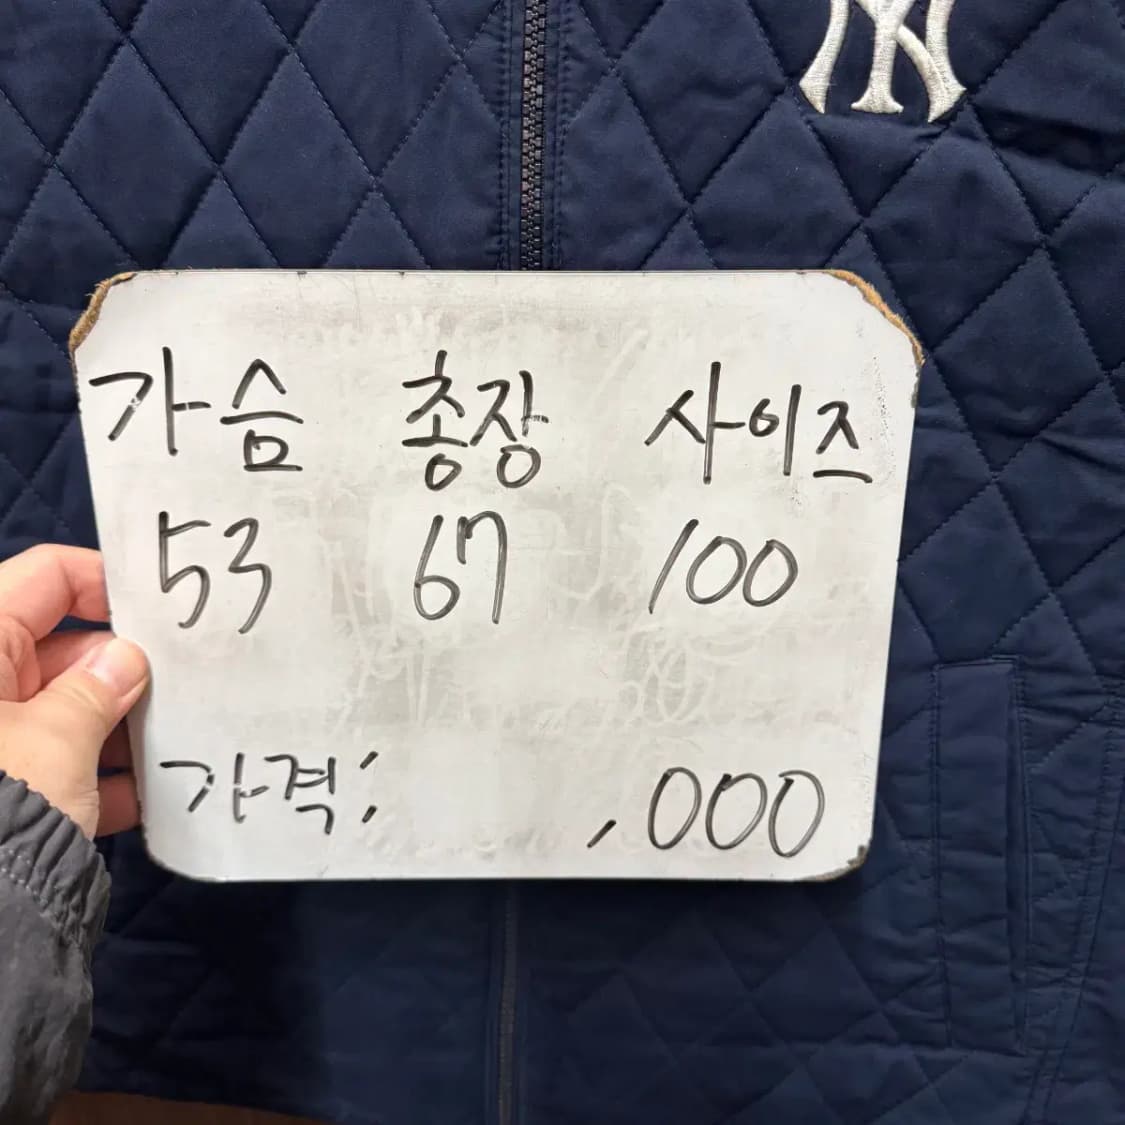 NY
가슴 총장 사이즈
53 67 100
가격: ,000